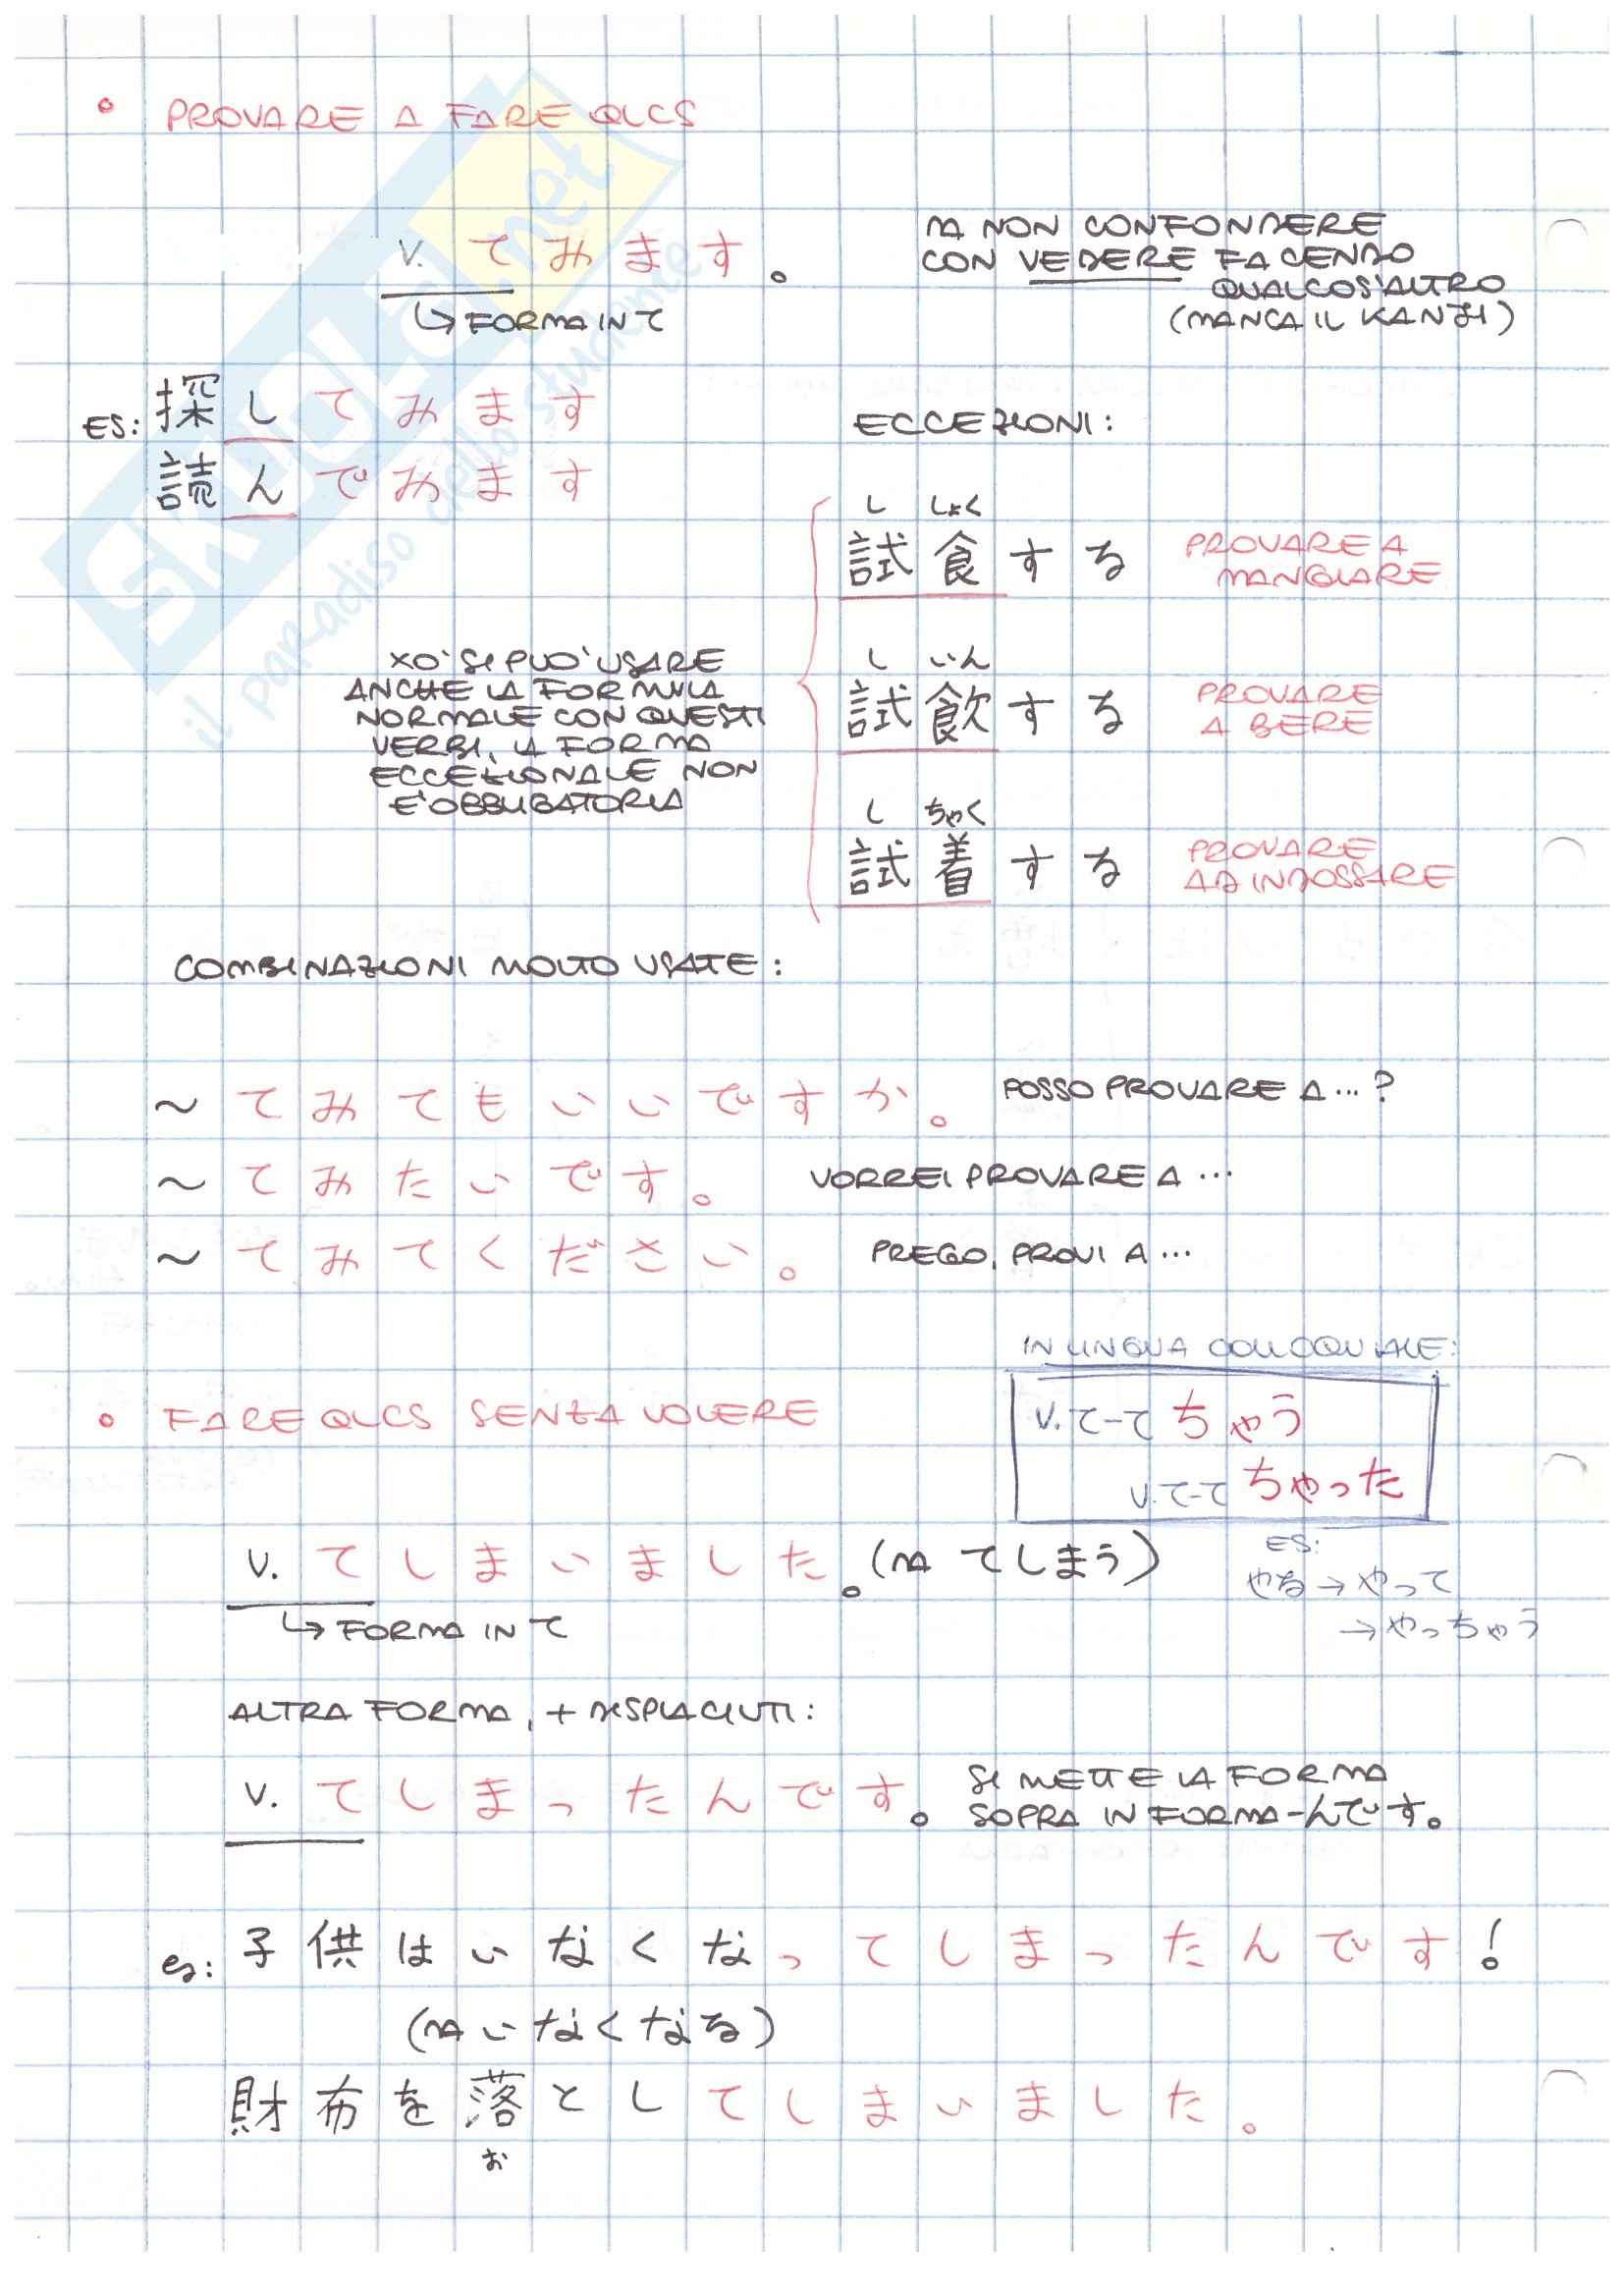 • PROVARE A FARE QLCS
V. てみます。
↳ FORMA IN て
DA NON CONFONDERE
CON VEDERE FACENDO
QUALCOS'ALTRO
(MANCA IL KANJI)
ES: 探してみます
読んでみます
ECCEZIONI:
し しょく
試食する PROVARE A
MANGIARE
XO' SI PUO' USARE
ANCHE LA FORMULA
NORMALE CON QUESTI
VERBI, LA FORMA
ECCEZIONALE NON
E' OBBLIGATORIA
し いん
試飲する PROVARE
A BERE
し ちゃく
試着する PROVARE
AD INDOSSARE
COMBINAZIONI MOLTO USATE:
~てみてもいいですか。 POSSO PROVARE A ...?
~てみたいです。 VORREI PROVARE A ...
~てみてください。 PREGO, PROVI A ...
• FARE QLCS SENZA VOLERE
IN LINGUA COLLOQUIALE:
V. て-て ちゃう
V. て-て ちゃった
ES:
やる → やって
→ やっちゃう
V. てしまいました。(DA てしまう)
↳ FORMA IN て
ALTRA FORMA, + DISPIACIUTI:
V. てしまったんです。 SI METTE LA FORMA
SOPRA IN FORMA -んです。
es: 子供はいなくなってしまったんです!
(DA いなくなる)
財布を落としてしまいました。
お
SKUOLA.net
il paradiso dello studente